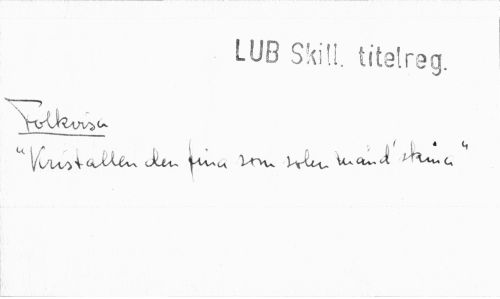 LUB Skill. titelreg.
Folkvisa
"Kristallen den fina som solen månd' skina"